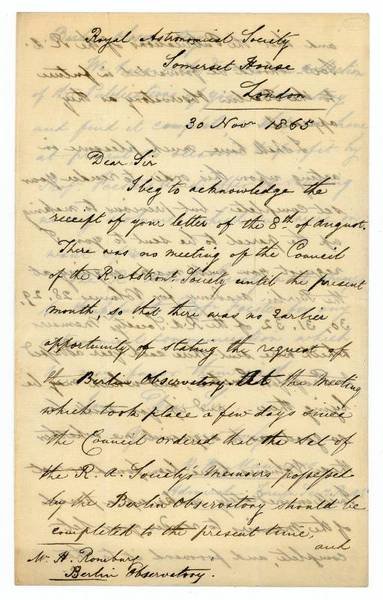 Royal Astronomical Society
Somerset House
London
30 Novr 1865
Dear Sir
I beg to acknowledge the
receipt of your letter of the 8th of August.
There was no meeting of the Council
of the R. Astron. Society until the present
month, so that there was no earlier
opportunity of stating the request of
the Berlin Observatory. At the meeting
which took place a few days since
the Council ordered that the set of
the R. A. Society's Memoirs possessed
by the Berlin Observatory should be
completed to the present time,
and
Mr H. Romburg
Berlin Observatory.